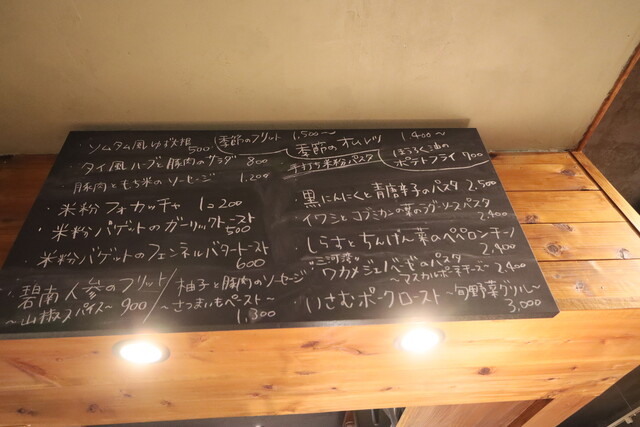 ・ソムタム風ゆず大根 500
・タイ風ハーブと豚肉のサラダ 800
・豚肉ともち米のソーセージ 1,200
・米粉フォカッチャ 1コ200
・米粉バゲットのガーリックトースト 500
・米粉バゲットのフェンネルバタートースト 600
・碧南人参のフリット
〜山椒スパイス〜 900
・柚子と豚肉のソーセージ
〜さつまいもペースト〜 1,300
・季節のフリット 1,500〜
・季節のオムレツ 1,400〜
手打ち米粉パスタ
・ほうろく油のポテトフライ 900
・黒にんにくと青唐辛子のパスタ 2,500
・イワシと の菜の パスタ 2,400
・しらすとちんげん菜のペペロンチーノ 2,400
・三河湾ワカメジェノベーゼのパスタ
〜マスカルポーネチーズ〜 2,400
・いさむポークロースト〜旬野菜グリル〜 3,000